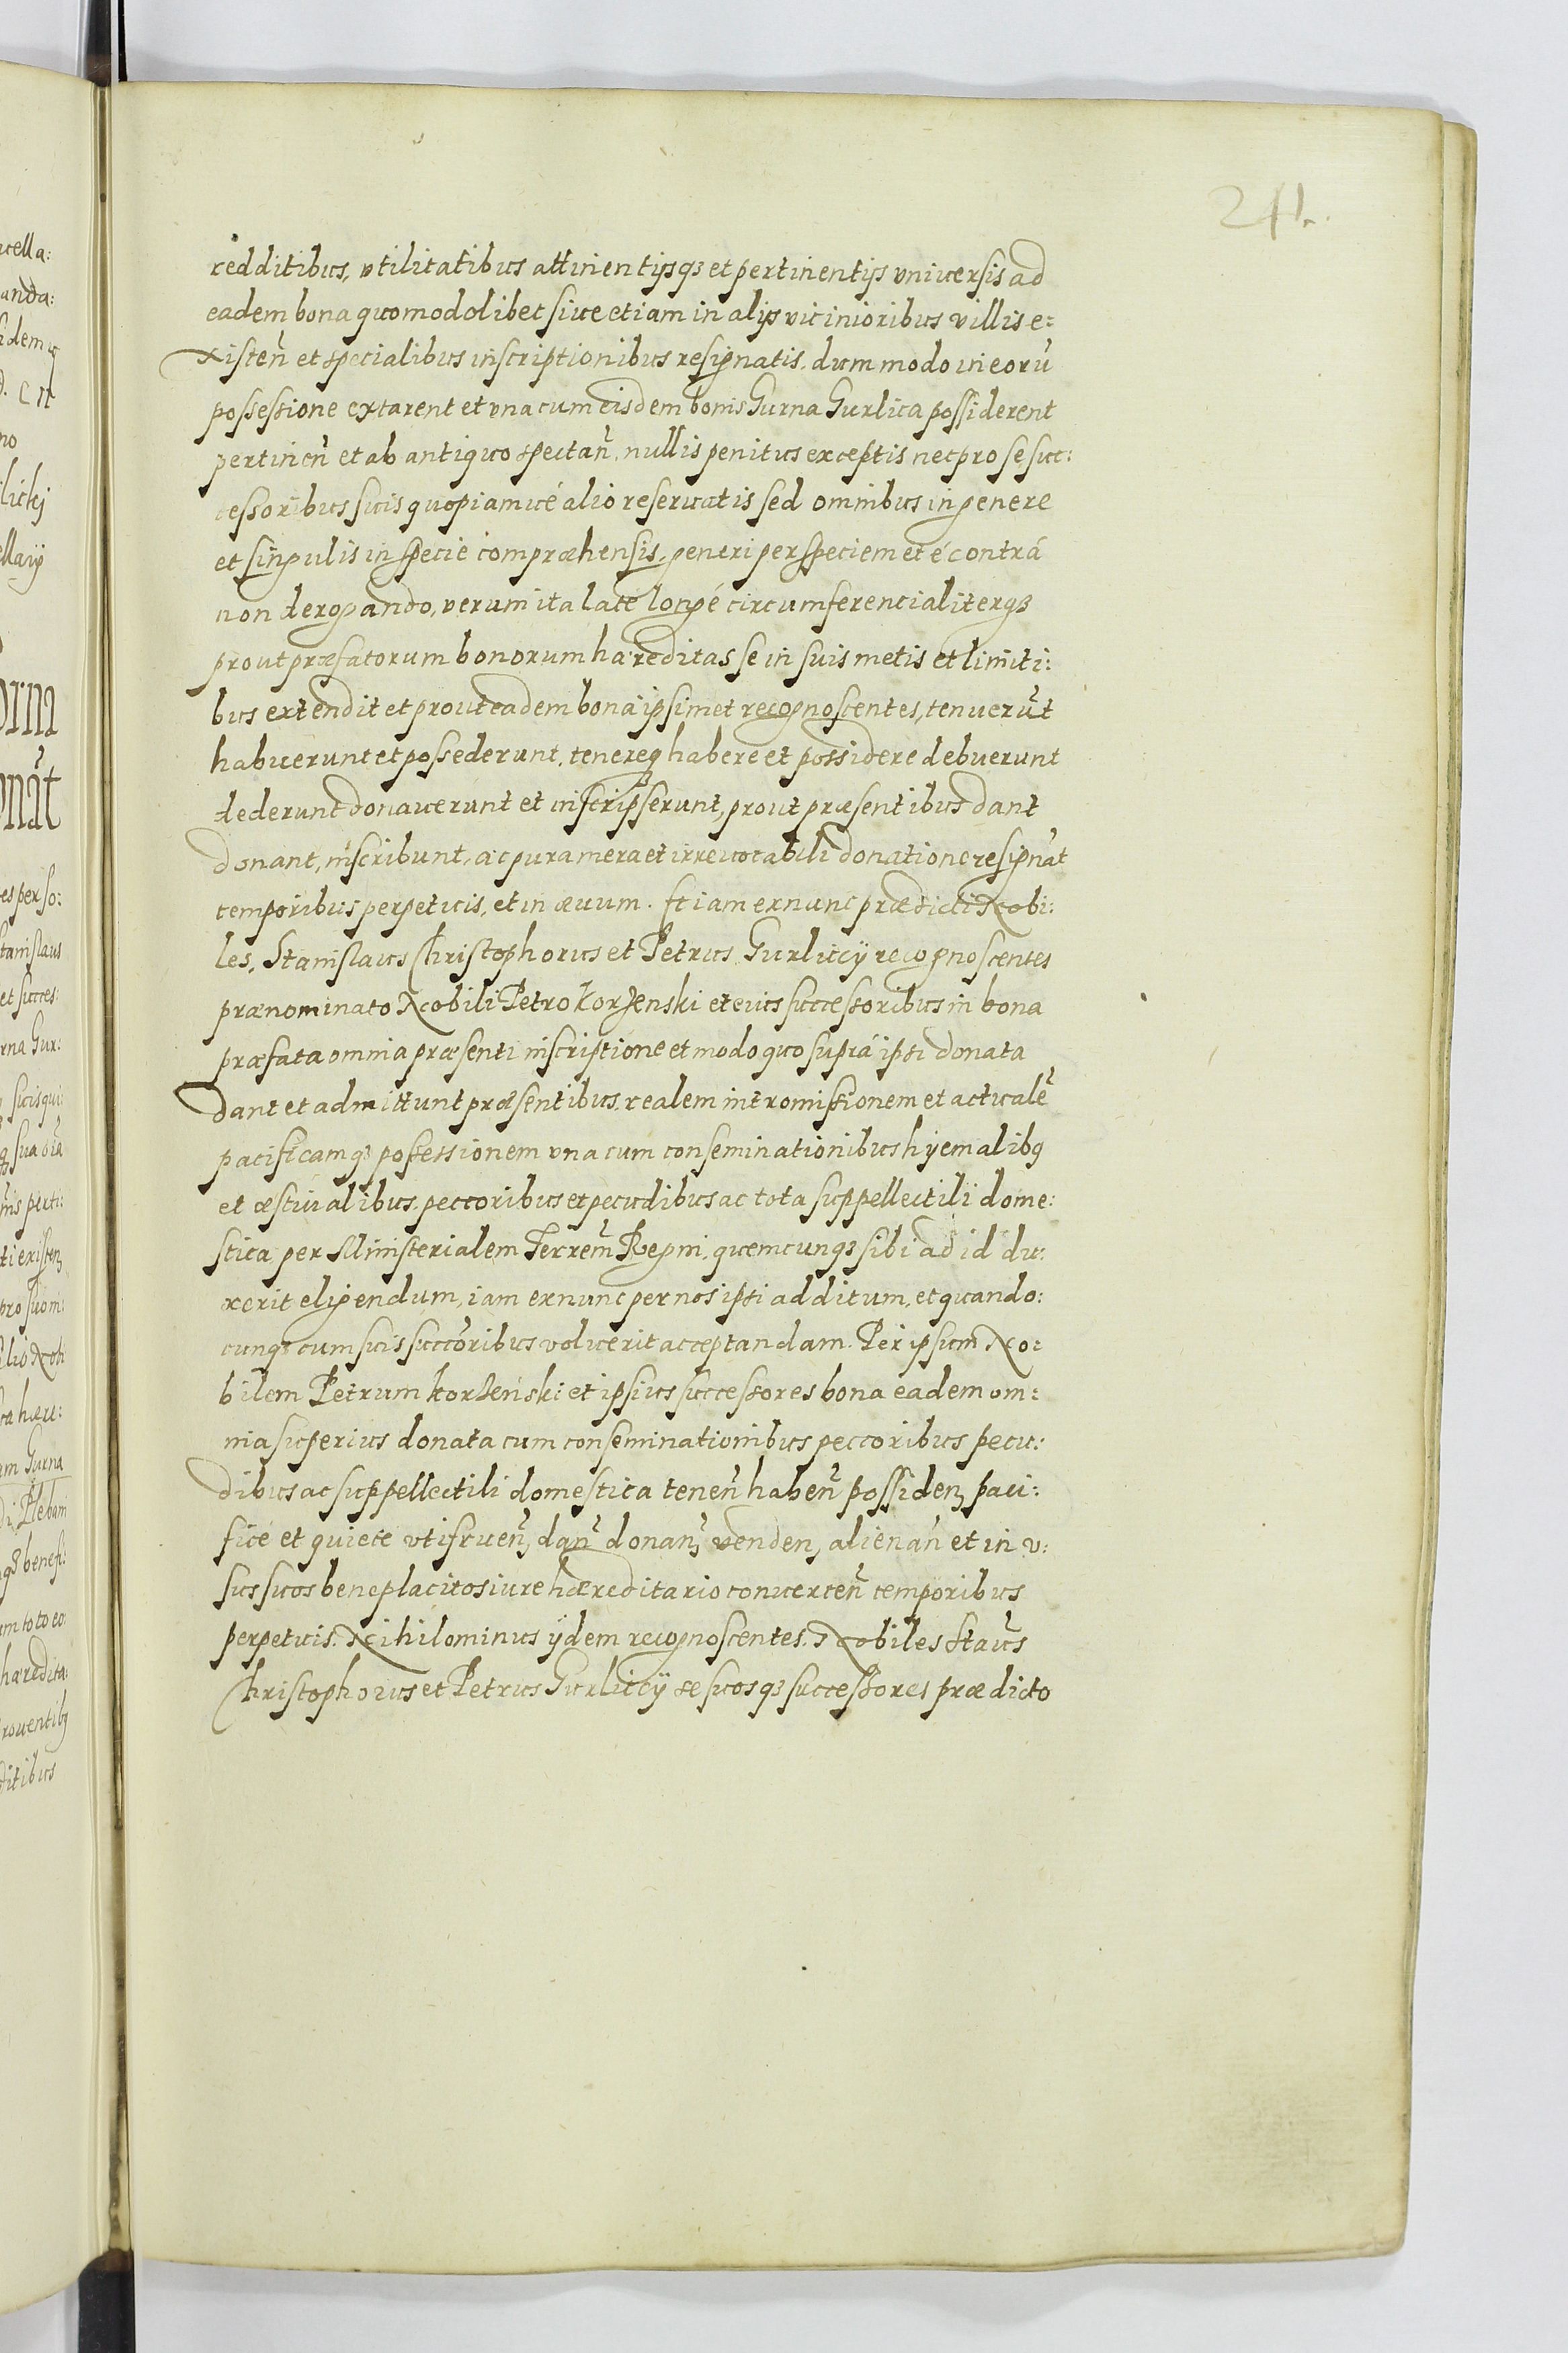 241.
redditibus, vtilitatibus attinentijsq3 et pertinentijs vniuersis ad
eadem bona quomodolibet siue etiam in alijs vicinioribus villis e:
xisteñ et specialibus inscriptionibus resignatis, dummodo in eorũ
possessione extarent et vna cum eisdem bonis Gurna Gurlica possiderent
pertineñ et ab antiquo spectañ, nullis penitus exceptis nec pro se suc:
cessoribus suis quopiamué alio reseruatis sed omnibus in genere
et singulis in specie compræhensis, generi per speciem et é contrá
non derogando, verum ita late longé circumferencialiterq3
prout præfatorum bonorum hæreditas se in suis metis et limiti:
bus extendit et prout eadem bona ipsimet recognoscentes, tenuerũt
habuerunt et possederunt, tenereq3 habere et possidere debuerunt
dederunt donauerunt et inscripserunt, prout præsentibus dant
donant, inscribunt, ac pura mera et irreuocabili donatione resignãt
temporibus perpetuis, et in æuum. Et iam ex nunc prædicti Nobi:
les, Stanislaus Christophorus et Petrus Gurliccÿ recognoscentes
prænominato Nobili Petro Korzenski et eius successoribus in bona
præfata omnia præsenti inscriptione et modo quo suprá ipsi donata
dant et admittunt præsentibus realem intromissionem et actualẽ
pacificamq3 possessionem vna cum conseminationibus hyemalibq
et æstiuialibus, peccoribus et pecudibus ac tota suppellectili dome:
stica per Ministerialem Terreñ Regni, quemcunq3 sibi ad id du:
xerit eligendum, iam ex nunc per nos ipsi additum, et quando:
cunq3 cum suis succõribus voluerit acceptandam. Per ipsum No:
bilem Petrum Korzeński et ipsius successores bona eadem om:
nia superius donata cum conseminationibus peccoribus pecu:
dibus ac suppellectili domestica teneñ habeñ possideñ paci:
ficé et quiete vtifrueñ, dañ donañ venden, alienañ et in v:
sus suos beneplacitos iure hæreditario conuerteñ temporibus
perpetuis. Nihilominus ÿdem recognoscentes, Nobiles Staũs
Christophorus et Petrus Gurliccÿ se suosq3 successores prædicto